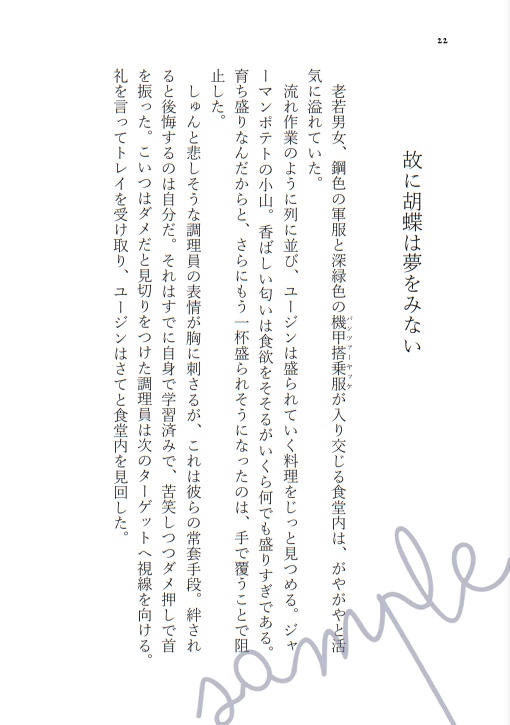 22
故に胡蝶は夢をみない
老若男女、鋼色の軍服と深緑色の機甲搭乗服が入り交じる食堂内は、がやがやと活
パンツァーヤッケ
気に溢れていた。
流れ作業のように列に並び、ユージンは盛られていく料理をじっと見つめる。ジャ
ーマンポテトの小山。香ばしい匂いは食欲をそそるがいくら何でも盛りすぎである。
育ち盛りなんだからと、さらにもう一杯盛られそうになったのは、手で覆うことで阻
止した。
しゅんと悲しそうな調理員の表情が胸に刺さるが、これは彼らの常套手段。絆され
ると後悔するのは自分だ。それはすでに自身で学習済みで、苦笑しつつダメ押しで首
を振った。こいつはダメだと見切りをつけた調理員は次のターゲットへ視線を向ける。
礼を言ってトレイを受け取り、ユージンはさてと食堂内を見回した。
sample